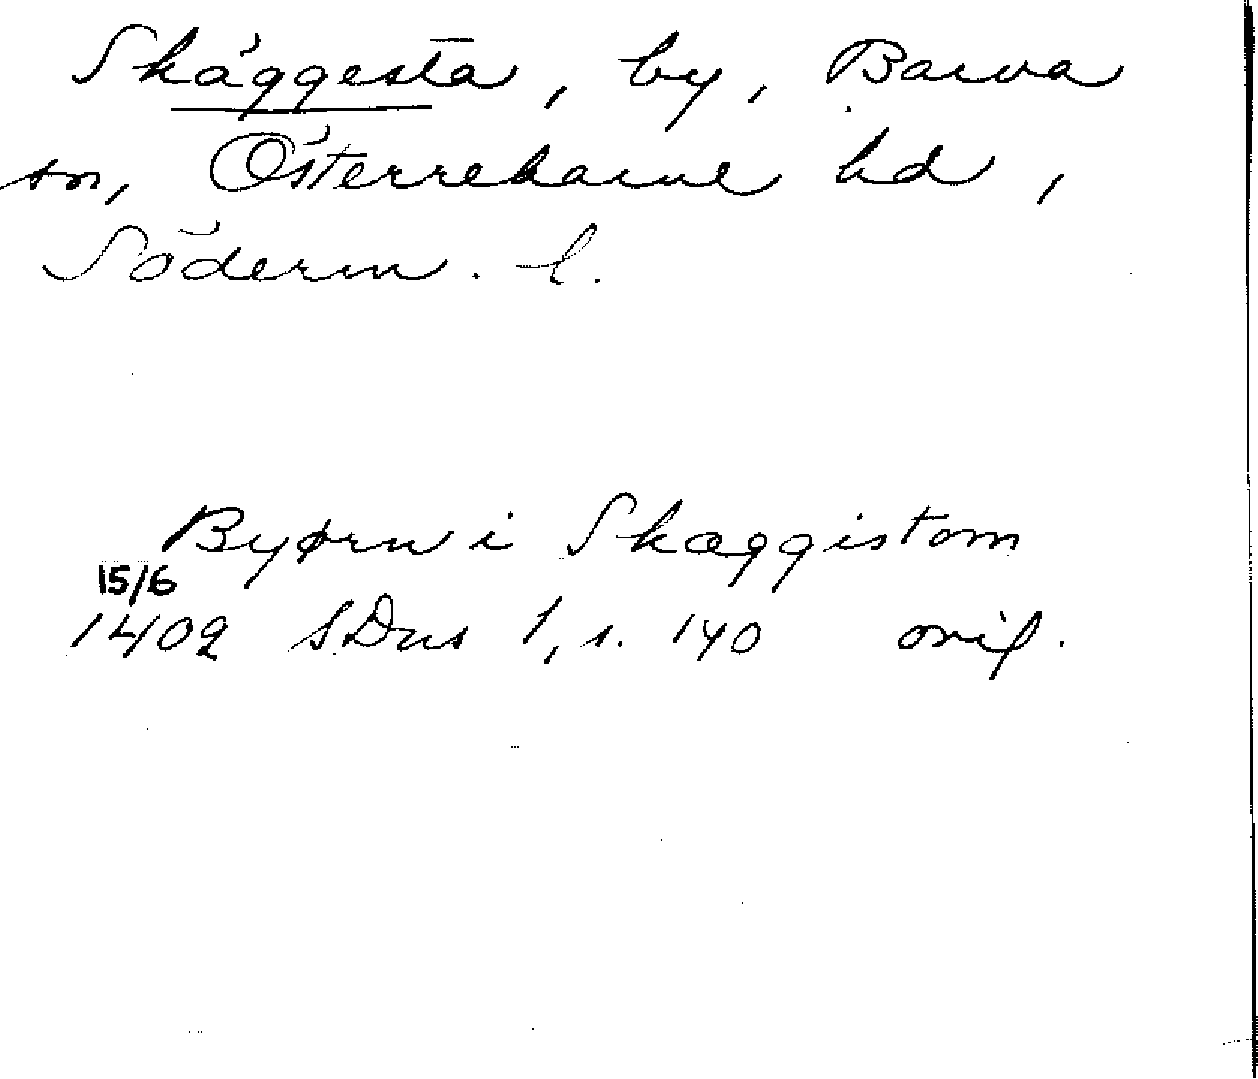 Skäggesta, by, Barva
sn, Österrekarne hd,
Söderm. l.
Byørn i Skæggistom
15/6
1402 SDns 1, s. 140 orig.